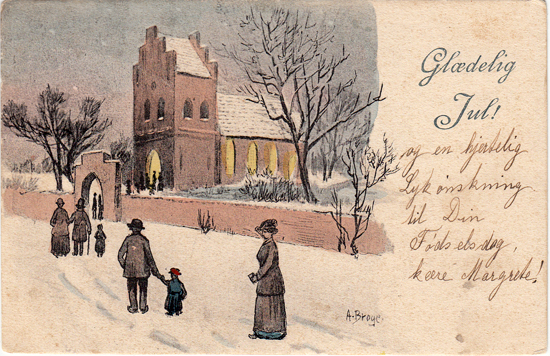 Glædelig
Jul!
og en hjertelig
Lykønskning
til Din
Fødselsdag,
kære Margrete!
A. Broge.